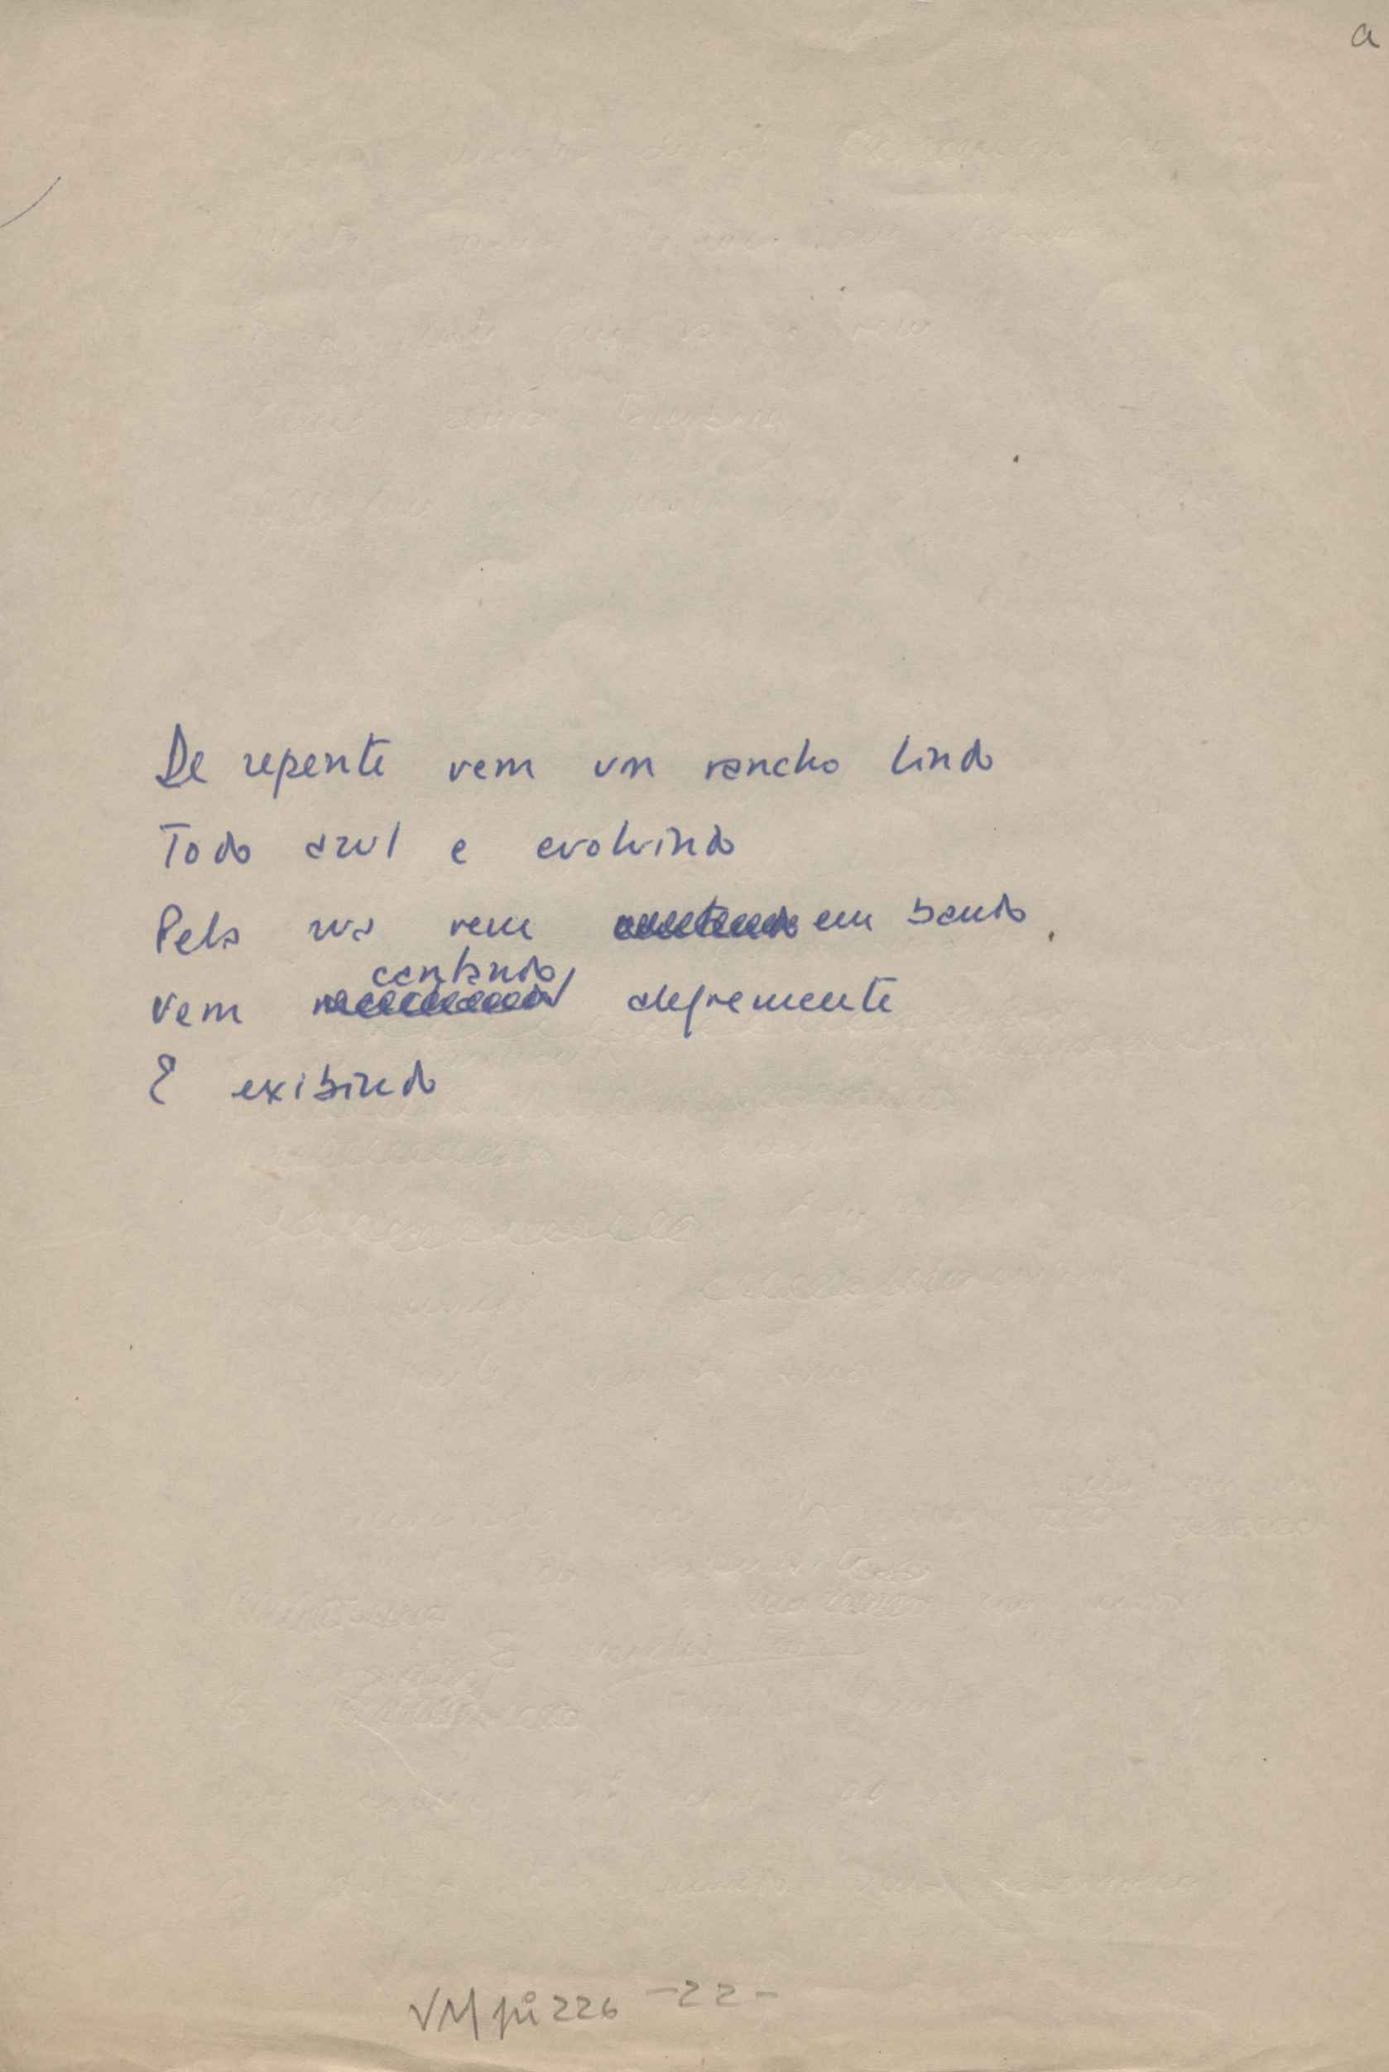 a
De repente vem um rancho lindo
Todo azul e evoluindo
Pela rua vem cantando em bando
cantando
Vem alegremente
E exibindo
VM pi 226 -22-